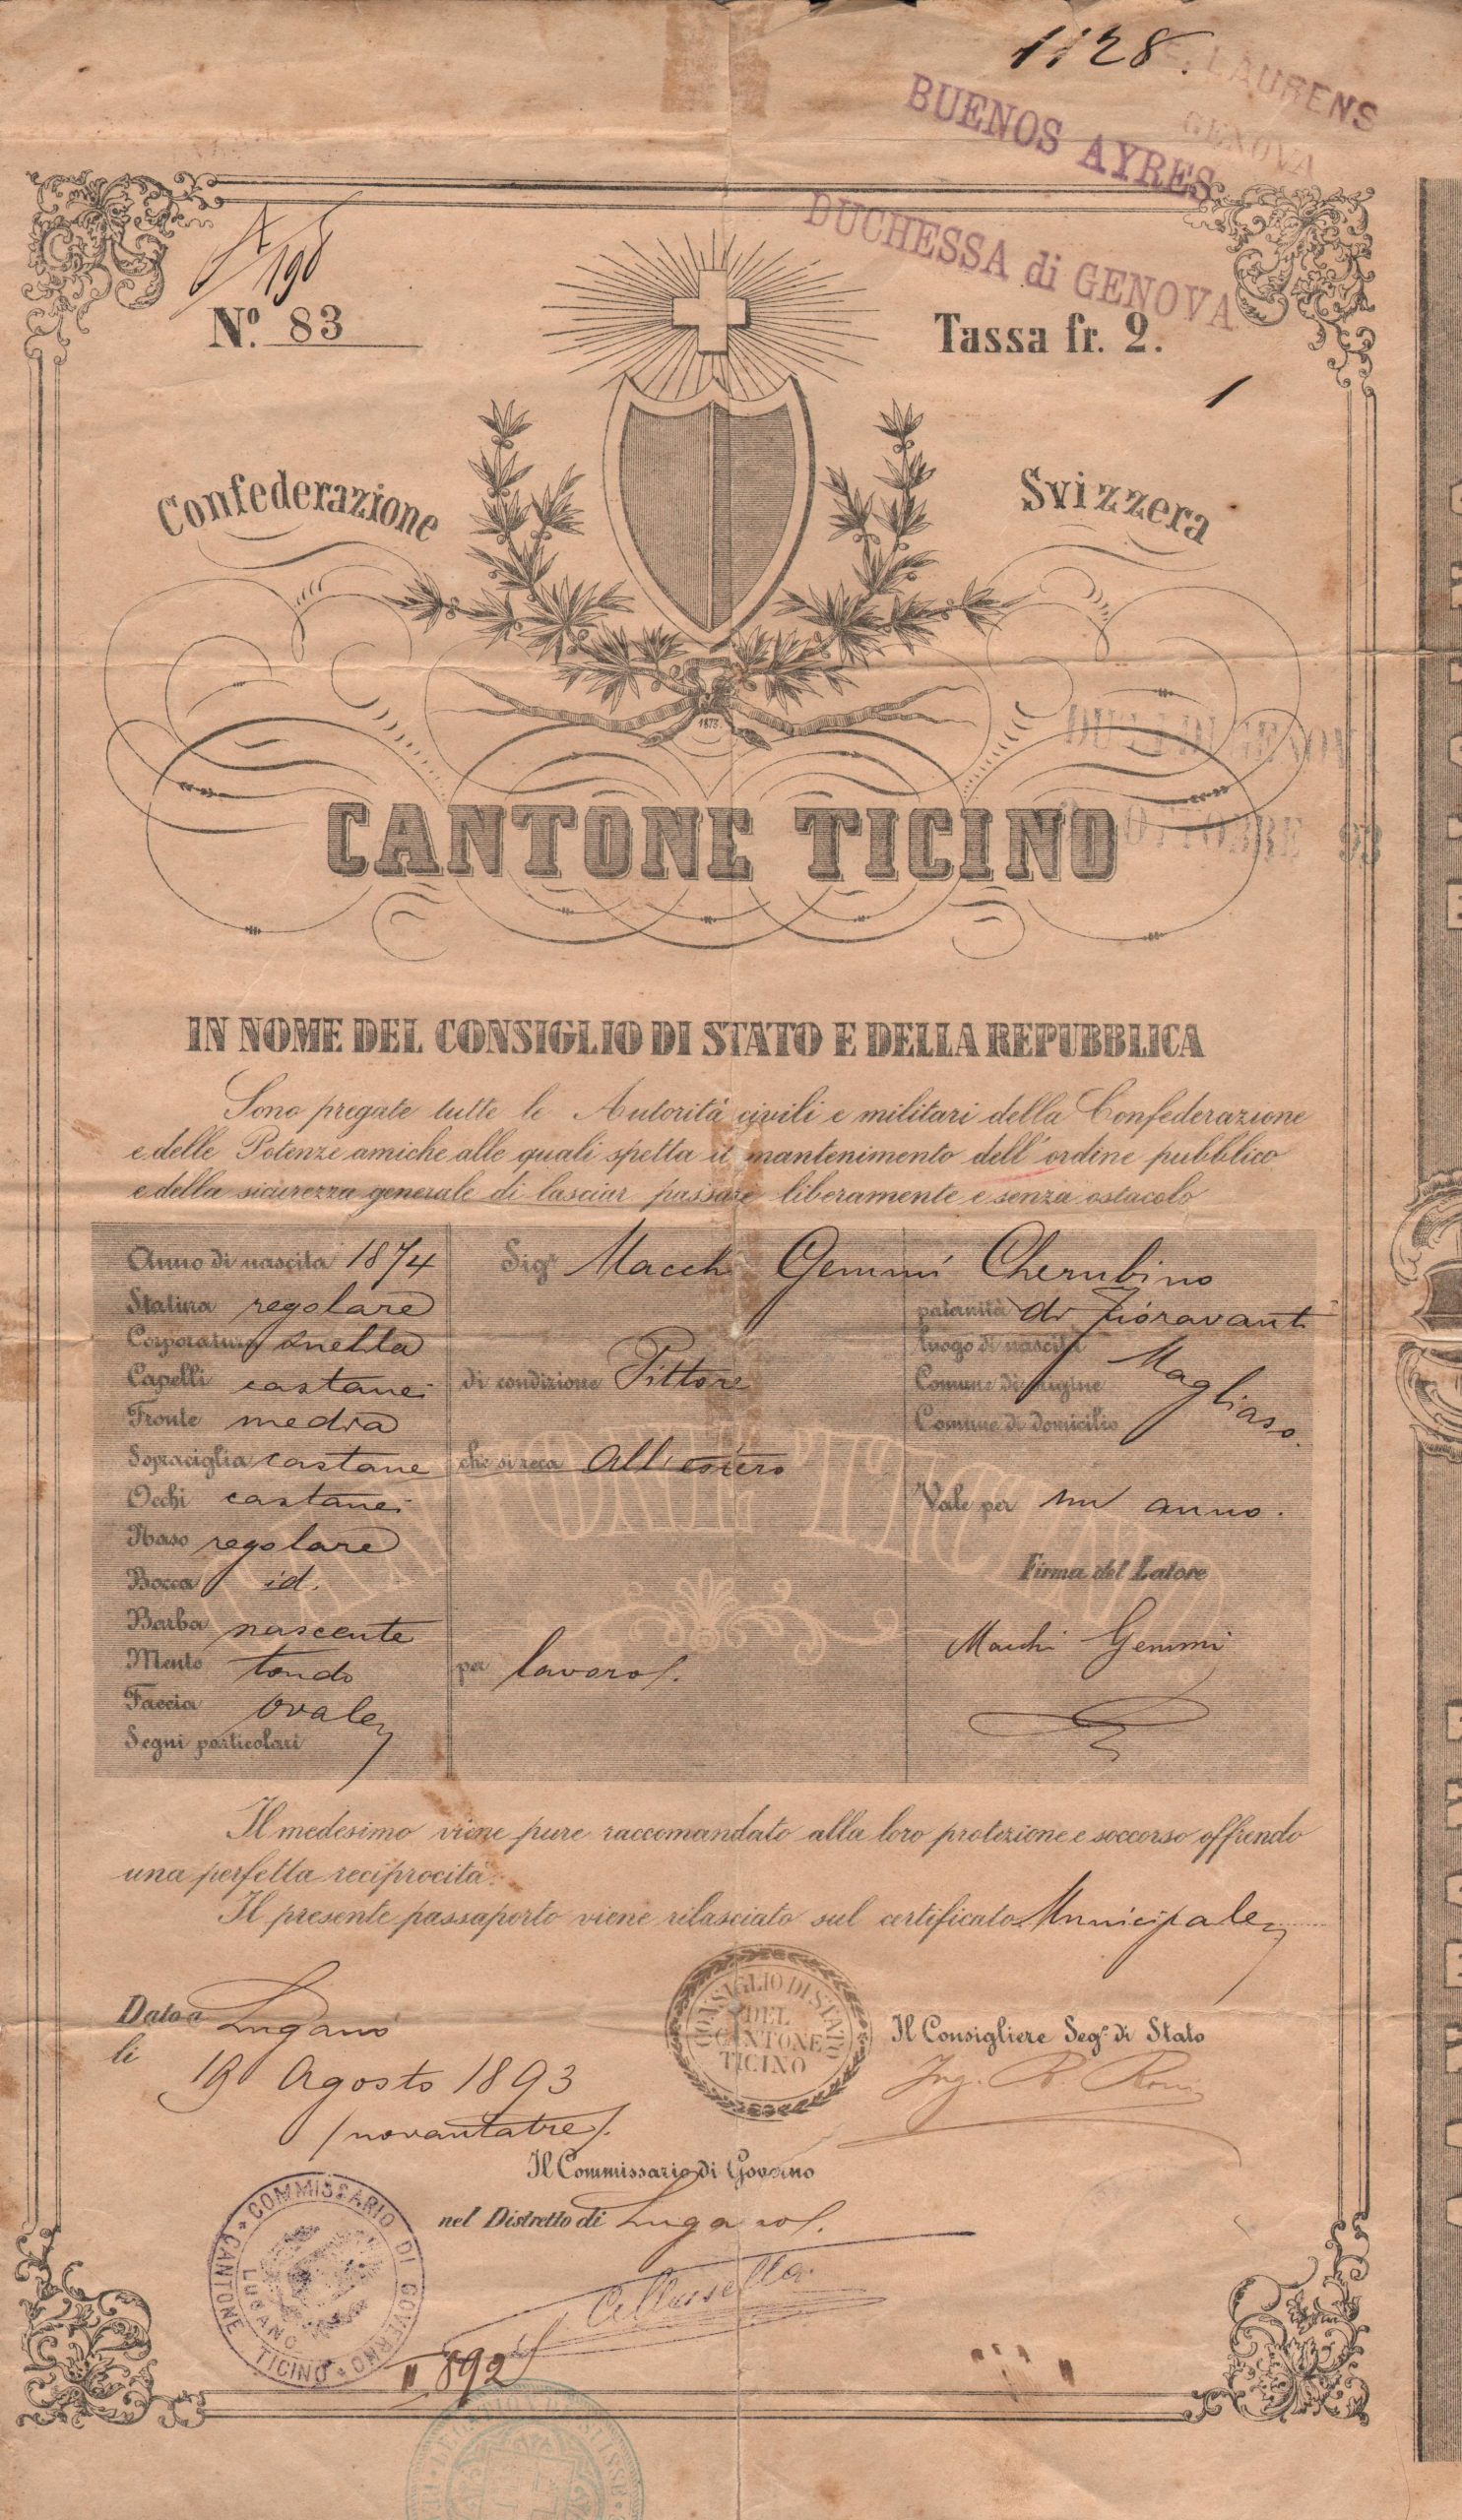 1128.
LAURENS
GENOVA
BUENOS AYRES
DUCHESSA di GENOVA
Nº. 83
Tassa fr. 2.
Confederazione Svizzera
1873
CANTONE TICINO
OTTOBRE 93
IN NOME DEL CONSIGLIO DI STATO E DELLA REPUBBLICA
Sono pregate tutte le Autorità civili e militari della Confederazione
e delle Potenze amiche alle quali spetta il mantenimento dell'ordine pubblico
e della sicurezza generale di lasciar passare liberamente e senza ostacolo
Anno di nascita 1874
Statura regolare
Corporatura snella
Capelli castanei
Fronte media
Sopraciglia castane
Occhi castanei
Naso regolare
Bocca id.
Barba nascente
Mento tondo
Faccia ovale
Segni particolari
Sigr Macchi Gemmi Cherubino
di condizione Pittore
che si reca all'estero
per lavoro
paternità di Fioravanti
luogo di nascita
Comune di origine Magliaso.
Comune di domicilio
Vale per un anno.
Firma del Latore
Macchi Gemmi
CANTONE TICINO
Il medesimo viene pure raccomandato alla loro protezione e soccorso offrendo
una perfetta reciprocità.
Il presente passaporto viene rilasciato sul certificato Municipale
Dato a Lugano
li 19 Agosto 1893
/novantatre/.
CONSIGLIO DI STATO
DEL
CANTONE
TICINO
Il Consigliere Segº di Stato
Ing.
Il Commissario di Governo
nel Distretto di Lugano
COMMISSARIO DI GOVERNO
CANTONE TICINO
LUGANO
892